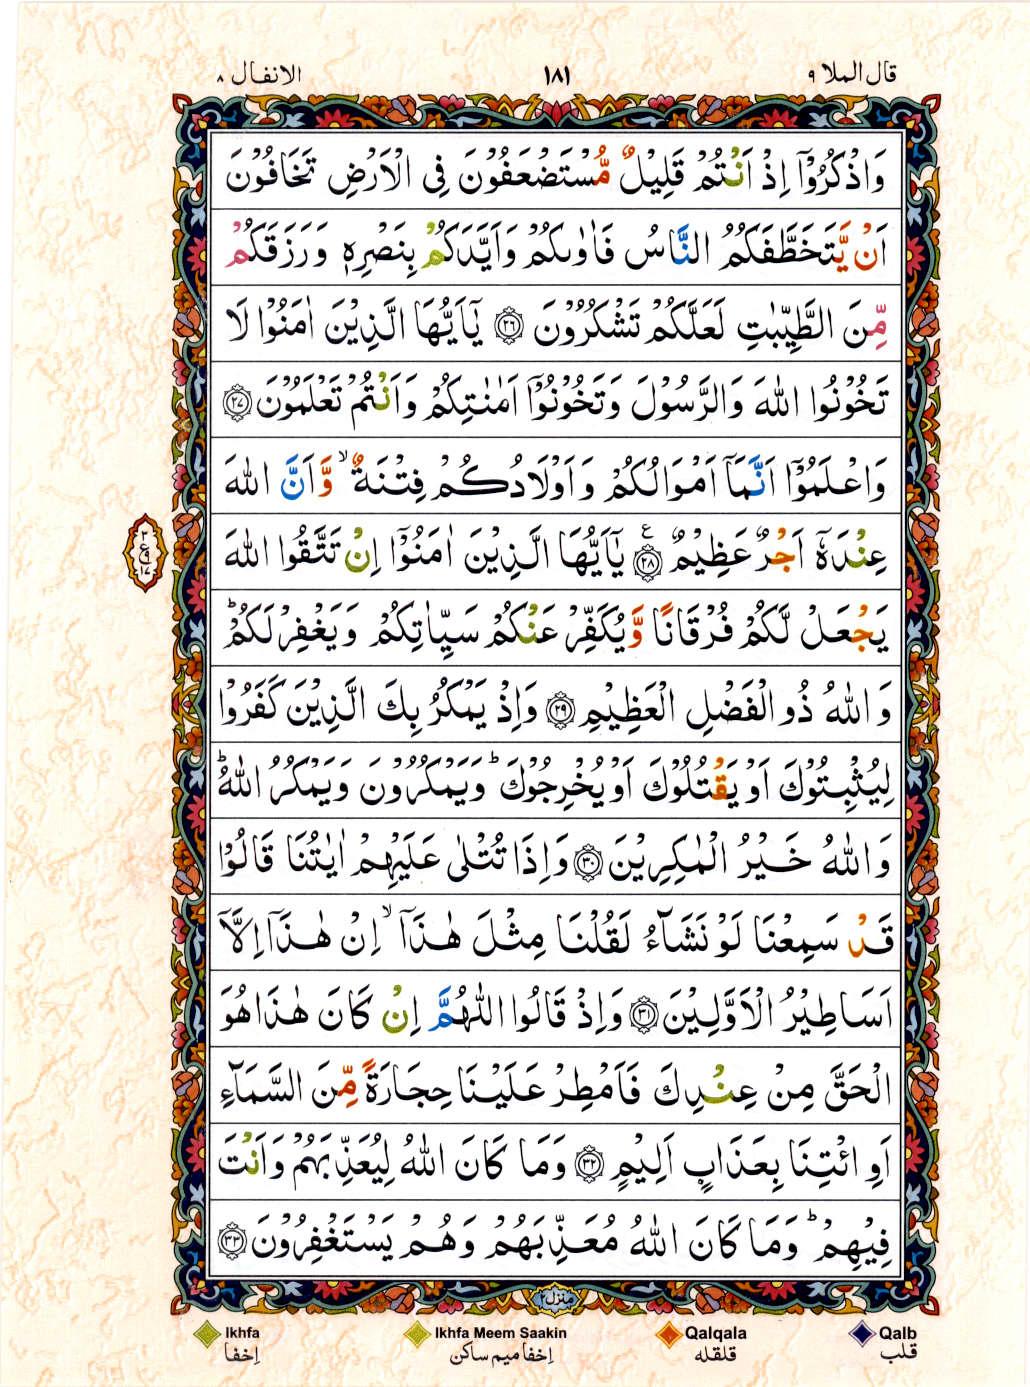 قال الملا ٩
١٨١
الانفال ٨
وَاذْكُرُوْۤا اِذْ اَنْتُمْ قَلِيْلٌ مُّسْتَضْعَفُوْنَ فِى الْاَرْضِ تَخَافُوْنَ
اَنْ يَّتَخَطَّفَكُمُ النَّاسُ فَاٰوٰىكُمْ وَاَيَّدَكُمْ بِنَصْرِهٖ وَرَزَقَكُمْ
مِّنَ الطَّيِّبٰتِ لَعَلَّكُمْ تَشْكُرُوْنَ ﴿٢٦﴾ يٰۤاَيُّهَا الَّذِيْنَ اٰمَنُوْا لَا
تَخُوْنُوا اللّٰهَ وَالرَّسُوْلَ وَتَخُوْنُوْۤا اَمٰنٰتِكُمْ وَاَنْتُمْ تَعْلَمُوْنَ ﴿٢٧﴾
وَاعْلَمُوْۤا اَنَّمَاۤ اَمْوَالُكُمْ وَاَوْلَادُكُمْ فِتْنَةٌ ۙ وَّاَنَّ اللّٰهَ
عِنْدَهٗۤ اَجْرٌ عَظِيْمٌ ﴿٢٨﴾ ع يٰۤاَيُّهَا الَّذِيْنَ اٰمَنُوْۤا اِنْ تَتَّقُوا اللّٰهَ
يَجْعَلْ لَّكُمْ فُرْقَانًا وَّيُكَفِّرْ عَنْكُمْ سَيِّاٰتِكُمْ وَيَغْفِرْ لَكُمْ ؕ
وَاللّٰهُ ذُو الْفَضْلِ الْعَظِيْمِ ﴿٢٩﴾ وَاِذْ يَمْكُرُ بِكَ الَّذِيْنَ كَفَرُوْا
لِيُثْبِتُوْكَ اَوْ يَقْتُلُوْكَ اَوْ يُخْرِجُوْكَ ؕ وَيَمْكُرُوْنَ وَيَمْكُرُ اللّٰهُ ؕ
وَاللّٰهُ خَيْرُ الْمٰكِرِيْنَ ﴿٣٠﴾ وَاِذَا تُتْلٰى عَلَيْهِمْ اٰيٰتُنَا قَالُوْا
قَدْ سَمِعْنَا لَوْ نَشَآءُ لَقُلْنَا مِثْلَ هٰذَاۤ ۙ اِنْ هٰذَاۤ اِلَّاۤ
اَسَاطِيْرُ الْاَوَّلِيْنَ ﴿٣١﴾ وَاِذْ قَالُوا اللّٰهُمَّ اِنْ كَانَ هٰذَا هُوَ
الْحَقَّ مِنْ عِنْدِكَ فَاَمْطِرْ عَلَيْنَا حِجَارَةً مِّنَ السَّمَآءِ
اَوِ ائْتِنَا بِعَذَابٍ اَلِيْمٍ ﴿٣٢﴾ وَمَا كَانَ اللّٰهُ لِيُعَذِّبَهُمْ وَاَنْتَ
فِيْهِمْ ؕ وَمَا كَانَ اللّٰهُ مُعَذِّبَهُمْ وَهُمْ يَسْتَغْفِرُوْنَ ﴿٣٣﴾
٣
ع
١٧
منزل ٢
Ikhfa Ikhfa Meem Saakin Qalqala Qalb
اِخفا اِخفا ميم ساكن قلقله قلب